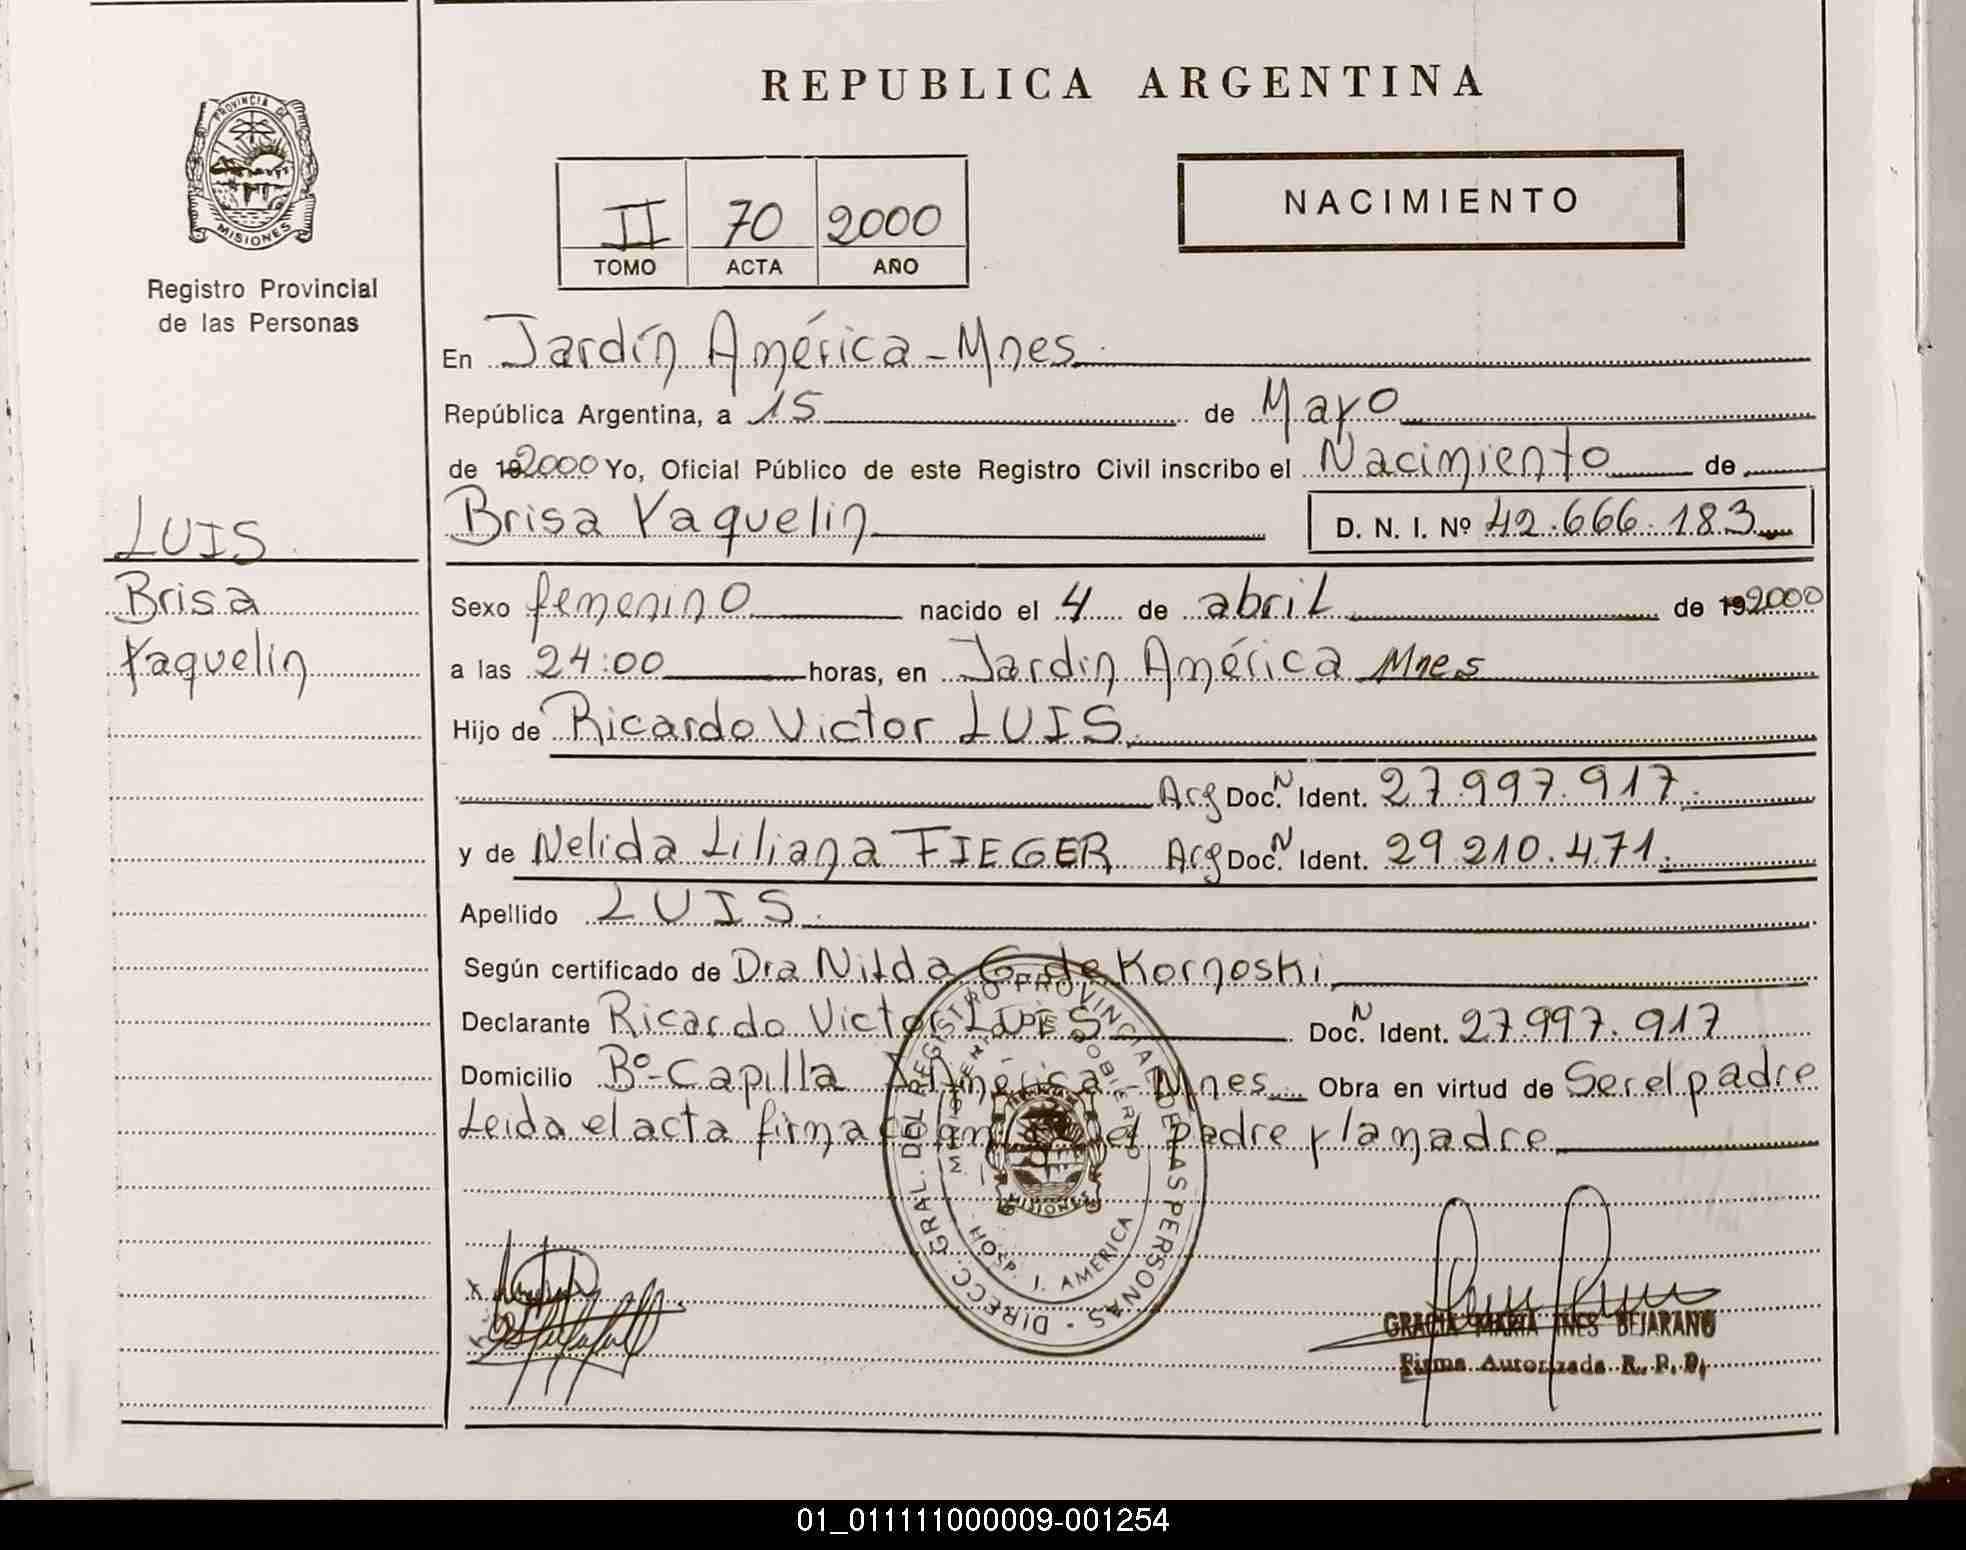 REPUBLICA ARGENTINA
PROVINCIA DE
MISIONES
Registro Provincial
de las Personas
II 70 2000
TOMO ACTA AÑO
NACIMIENTO
En Jardín América - Mnes.
República Argentina, a 15 de Mayo
de 192000 Yo, Oficial Público de este Registro Civil inscribo el Nacimiento de
Brisa Yaquelin D. N. I. Nº 42.666.183
LUIS
Brisa
Yaquelin
Sexo femenino nacido el 4 de abril de 192000
a las 24:00 horas, en Jardin América Mnes
Hijo de Ricardo Victor LUIS.
Arg Doc. N Ident. 27.997.917.
y de Nelida Liliana FIEGER Arg Doc. N Ident. 29.210.471.
Apellido LUIS.
Según certificado de Dra Nilda G. de Kornoski
Declarante Ricardo Victor LUIS Doc. N Ident. 27.997.917
Domicilio Bº-Capilla J. América Mnes. Obra en virtud de Ser el padre
Leida el acta firma el padre y la madre
DIRECC. GRAL. DEL REGISTRO PROVINCIAL DE LAS PERSONAS
MINISTERIO DE GOBIERNO
MISIONES
HOSP. J. AMERICA
GRACIA MARIA INES BEJARANO
Firma Autorizada R. P. P.
01_011111000009-001254